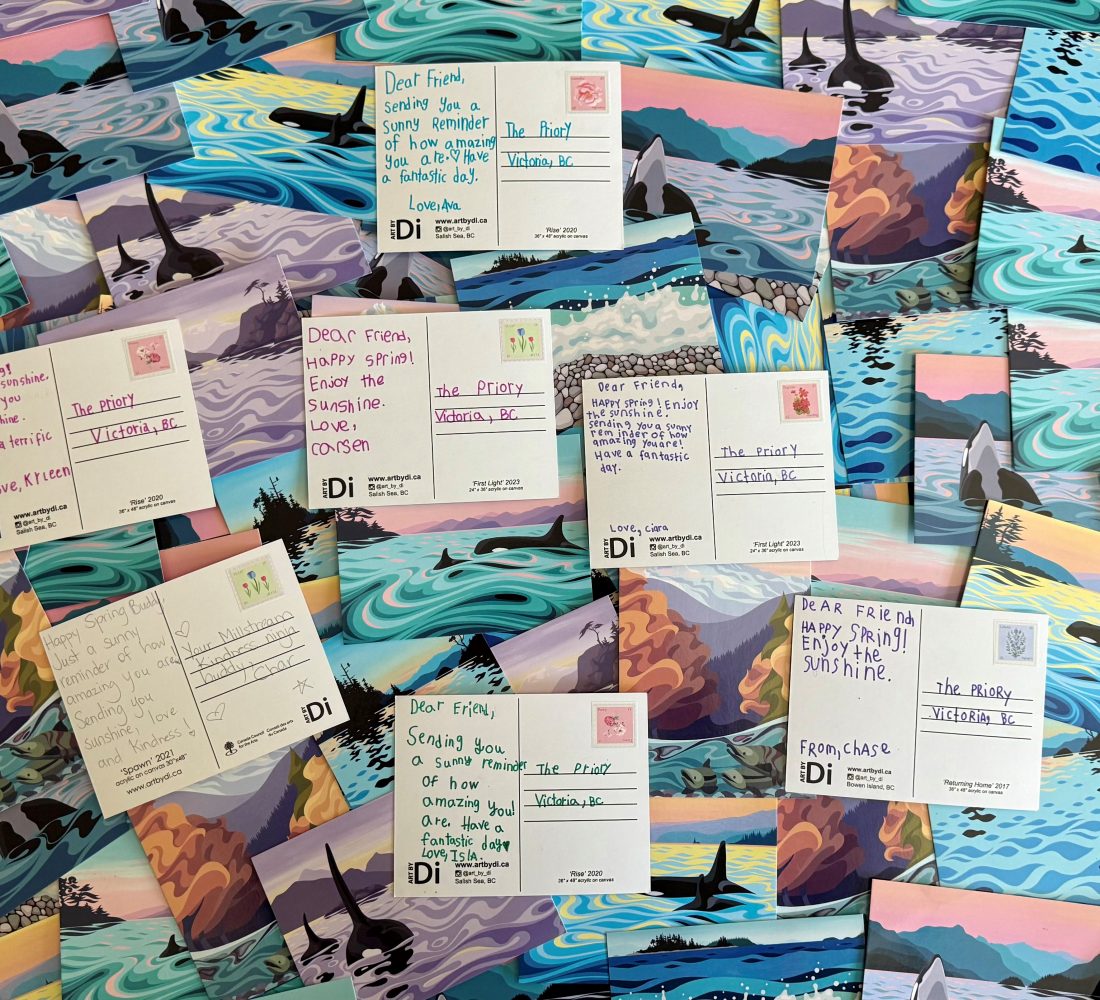 Dear Friend,
Sending you a
sunny Reminder
of how amazing
you are. ♡ Have
a fantastic day.
Love, Ava
The Priory
Victoria, BC
ART BY Di
www.artbydi.ca
@art_by_di
Salish Sea, BC
'Rise' 2020
36" x 48" acrylic on canvas
sunshine.
you
a terrific
Krleen
The Priory
Victoria, BC
www.artbydi.ca
@art_by_di
Salish Sea, BC
'Rise' 2020
36" x 48" acrylic on canvas
Dear Friend,
Happy spring!
Enjoy the
Sunshine.
Love,
Carsen
The Priory
Victoria, BC
ART BY Di
www.artbydi.ca
@art_by_di
Salish Sea, BC
'First Light' 2023
24" x 36" acrylic on canvas
Dear Friend,
HAPPY spring! Enjoy
the sunshine.
sending you a sunny
reminder of how
amazing you are!
Have a fantastic
day.
Love, Ciara
The Priory
Victoria, BC
ART BY Di
www.artbydi.ca
@art_by_di
Salish Sea, BC
'First Light' 2023
24" x 36" acrylic on canvas
Happy Spring Buddy,
Just a sunny
reminder of how
amazing you are
Sending you
sunshine, love
and kindness!
Your Millstream
Kindness ninja
buddy, Char
'Spawn' 2021
acrylic on canvas 30"x48"
www.artbydi.ca
Canada Council for the Arts
Conseil des arts du Canada
ART BY Di
Dear Friend,
Sending you
a sunny reminder
of how
amazing you!
are. Have a
fantastic day♥
Love, Isla.
The Priory
Victoria, BC
ART BY Di
www.artbydi.ca
@art_by_di
Salish Sea, BC
'Rise' 2020
36" x 48" acrylic on canvas
DEAR FRIEND
HAPPY SPRING!
ENJOY the
sunshine.
FROM, CHASE
The PRIORY
VICTORIA, BC
ART BY Di
www.artbydi.ca
@art_by_di
Bowen Island, BC
'Returning Home' 2017
36" x 48" acrylic on canvas